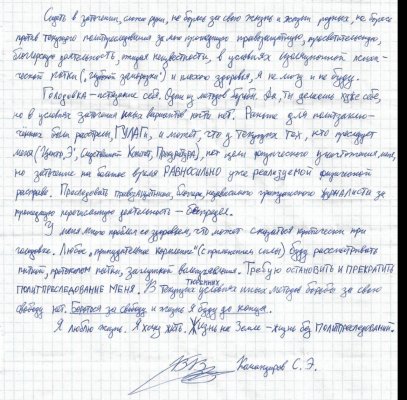 Сидеть в заточении, сложа руки, не борясь за свою жизнь и жизни родных, не борясь
против текущего политпреследования за мою прошедшую правозащитную, просветительскую,
блогерскую деятельность, тащат неизвестности, в условиях изоляционной психи-
ческой пытки ("глубокой заморозки") и плохого здоровья, я не могу и не буду.
Голодовка - истязание себя. Один из методов борьбы. Да, ты делаешь хуже себе,
но в условиях заточения иных вариантов почти нет. Раньше для политзаклю-
ченных были расстрелы, ГУЛАГи, и может, что у текущих тех, кто преследует
меня (Центр "Э", Следственный Комитет, Прокуратура), нет цели физического уничтожения меня,
но заточение на большое время РАВНОСИЛЬНО уже реализуемой физической
расправе. Преследовать правозащитника, блогера, независимого гражданского журналиста за
прошедшую ненасильственную деятельность - беспредел.
У меня много проблем со здоровьем, что может сказаться критически при
голодовке. Любое "принудительное кормление" (с применением силы) буду рассматривать
пыткой, протоколом пытки, заглушкой
ПОЛИТПРЕСЛЕДОВАНИЕ МЕНЯ. В текущих тюремных условиях иных методов борьбы за свою
свободу нет. Бороться за свободу и жизнь я буду до конца.
Я люблю жизнь. Я хочу жить. Жизнь на Земле - жизнь без ПОЛИТПРЕСЛЕДОВАНИЙ.
Командиров С. Э.